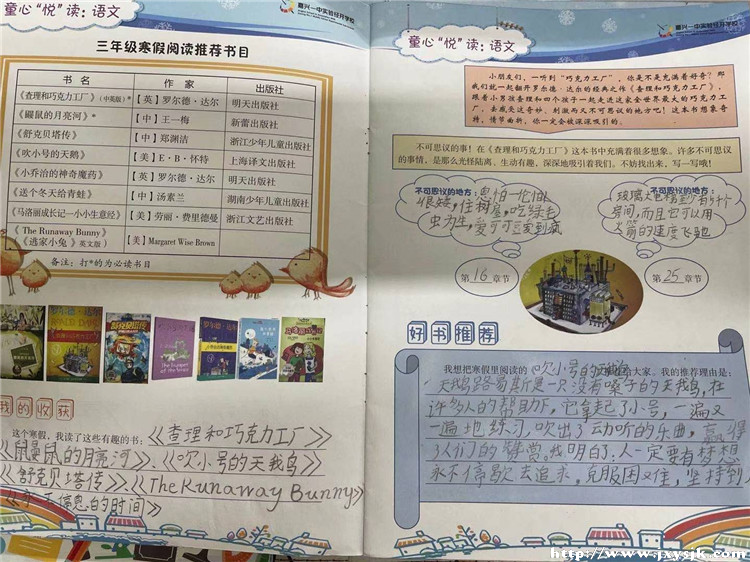 童心“悦”读：语文
嘉兴一中实验经开学校
三年级寒假阅读推荐书目
书 名 作 家 出版社
《查理和巧克力工厂》（中英版）* 【英】罗尔德·达尔 明天出版社
《鼹鼠的月亮河》* 【中】王一梅 新蕾出版社
《舒克贝塔传》 【中】郑渊洁 浙江少年儿童出版社
《吹小号的天鹅》 【美】E·B·怀特 上海译文出版社
《小乔治的神奇魔药》 【英】罗尔德·达尔 明天出版社
《送个冬天给青蛙》 【中】汤素兰 湖南少年儿童出版社
《马洛丽成长记—小小生意经》 【美】劳丽·费里德曼 浙江文艺出版社
《The Runaway Bunny》
《逃家小兔》英文版 【美】Margaret Wise Brown
备注：打*的为必读书目
罗尔德·达尔
ROALD DAHL
罗尔德·达尔
我的收获
这个寒假，我读了这些有趣的书：《查理和巧克力工厂》
《鼹鼠的月亮河》、《吹小号的天鹅》
《舒克贝塔传》《The Runaway Bunny》
的时间》
童心“悦”读：语文
嘉兴一中实验经开学校
小朋友们，一听到“巧克力工厂”，你是不是充满着好奇？那
我们就一起翻开罗尔德·达尔的经典之作《查理和巧克力工厂》，
跟着小男孩查理和四个孩子一起走进这家全世界最大的巧克力工
厂，去感受这奇妙、刺激而又不可思议的地方吧！这本书想象奇
特，情节曲折，你一定会被深深吸引的。
不可思议的事！在《查理和巧克力工厂》这本书中充满着很多想象。许多不可思议
的事情，是那么光怪陆离、生动有趣，深深地吸引着我们。不妨找出来，写一写哦！
不可思议的地方：
很矮，住树屋，吃绿毛
虫为生，爱可可豆爱到疯
第 16 章节
不可思议的地方：
玻璃大电梯
房间，而且它可以用
火箭的速度飞驰
第 25 章节
好书推荐
我想把寒假里阅读的《吹小号的天鹅》 给大家。我的推荐理由是：
天鹅路易斯是一只没有嗓子的天鹅，在
许多人的帮助下，它拿起了小号，一遍又
一遍地练习，吹出了动听的乐曲，赢得
了人们的赞赏。我明白了：人一定要有梦想
永不停歇去追求，克服困难，坚持到
http://www.jxysjk.com/